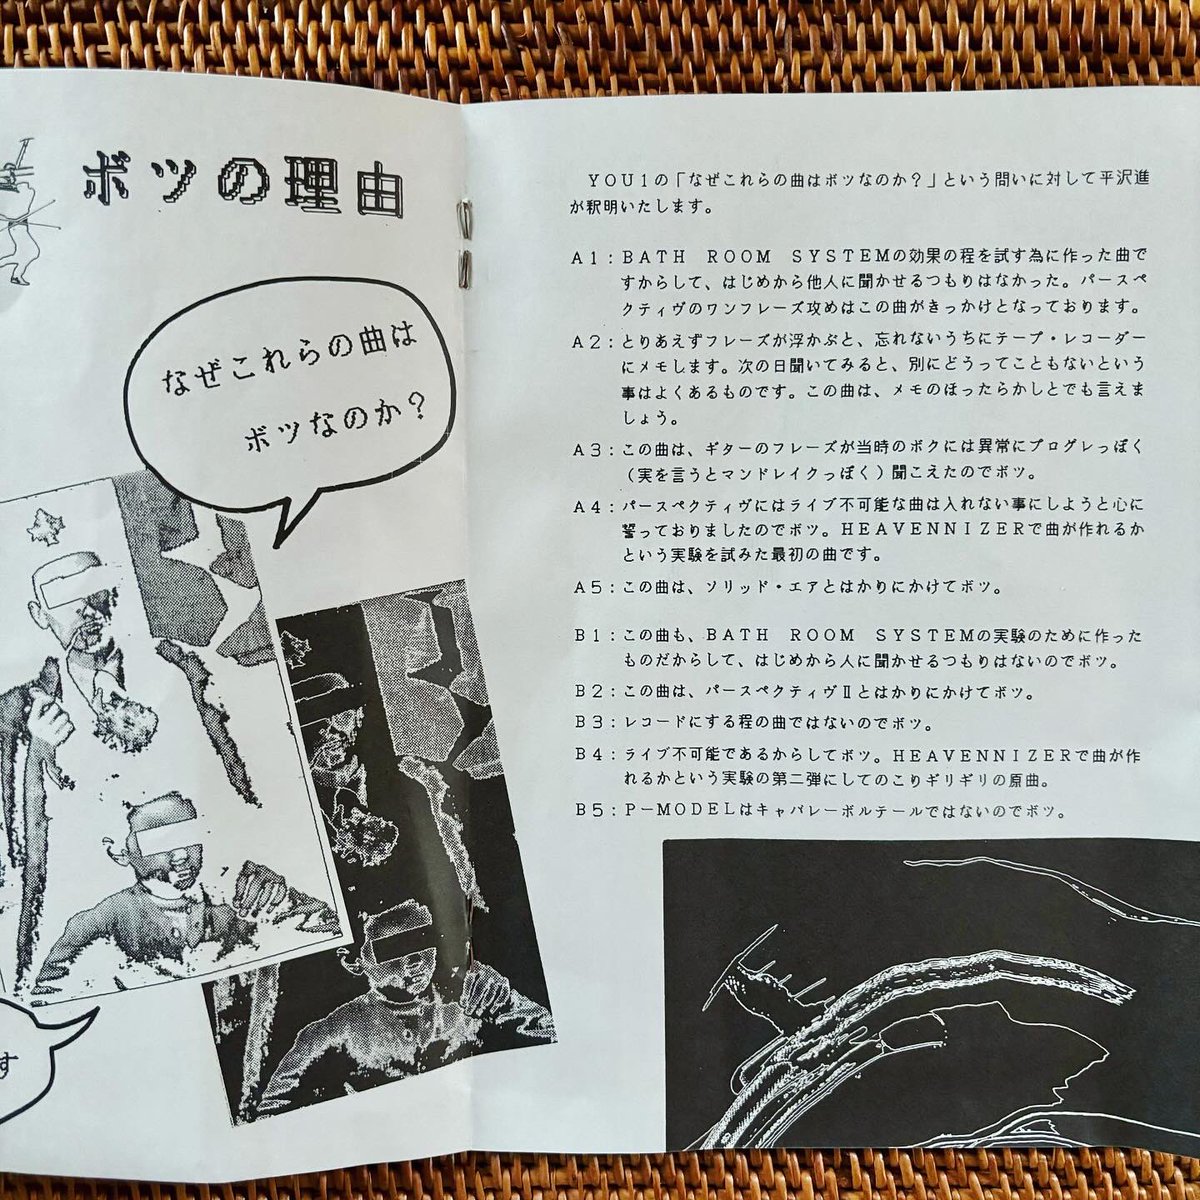 ボツの理由
なぜこれらの曲は
ボツなのか？
す
ＹＯＵ１の「なぜこれらの曲はボツなのか？」という問いに対して平沢進
が釈明いたします。
Ａ１：ＢＡＴＨ　ＲＯＯＭ　ＳＹＳＴＥＭの効果の程を試す為に作った曲で
すからして、はじめから他人に聞かせるつもりはなかった。パースペ
クティヴのワンフレーズ攻めはこの曲がきっかけとなっております。
Ａ２：とりあえずフレーズが浮かぶと、忘れないうちにテープ・レコーダー
にメモします。次の日聞いてみると、別にどうってこともないという
事はよくあるものです。この曲は、メモのほったらかしとでも言えま
しょう。
Ａ３：この曲は、ギターのフレーズが当時のボクには異常にプログレっぽく
（実を言うとマンドレイクっぽく）聞こえたのでボツ。
Ａ４：パースペクティヴにはライブ不可能な曲は入れない事にしようと心に
誓っておりましたのでボツ。ＨＥＡＶＥＮＮＩＺＥＲで曲が作れるか
という実験を試みた最初の曲です。
Ａ５：この曲は、ソリッド・エアとはかりにかけてボツ。
Ｂ１：この曲も、ＢＡＴＨ　ＲＯＯＭ　ＳＹＳＴＥＭの実験のために作った
ものだからして、はじめから人に聞かせるつもりはないのでボツ。
Ｂ２：この曲は、パースペクティヴⅡとはかりにかけてボツ。
Ｂ３：レコードにする程の曲ではないのでボツ。
Ｂ４：ライブ不可能であるからしてボツ。ＨＥＡＶＥＮＮＩＺＥＲで曲が作
れるかという実験の第二弾にしてのこりギリギリの原曲。
Ｂ５：Ｐ－ＭＯＤＥＬはキャバレーボルテールではないのでボツ。